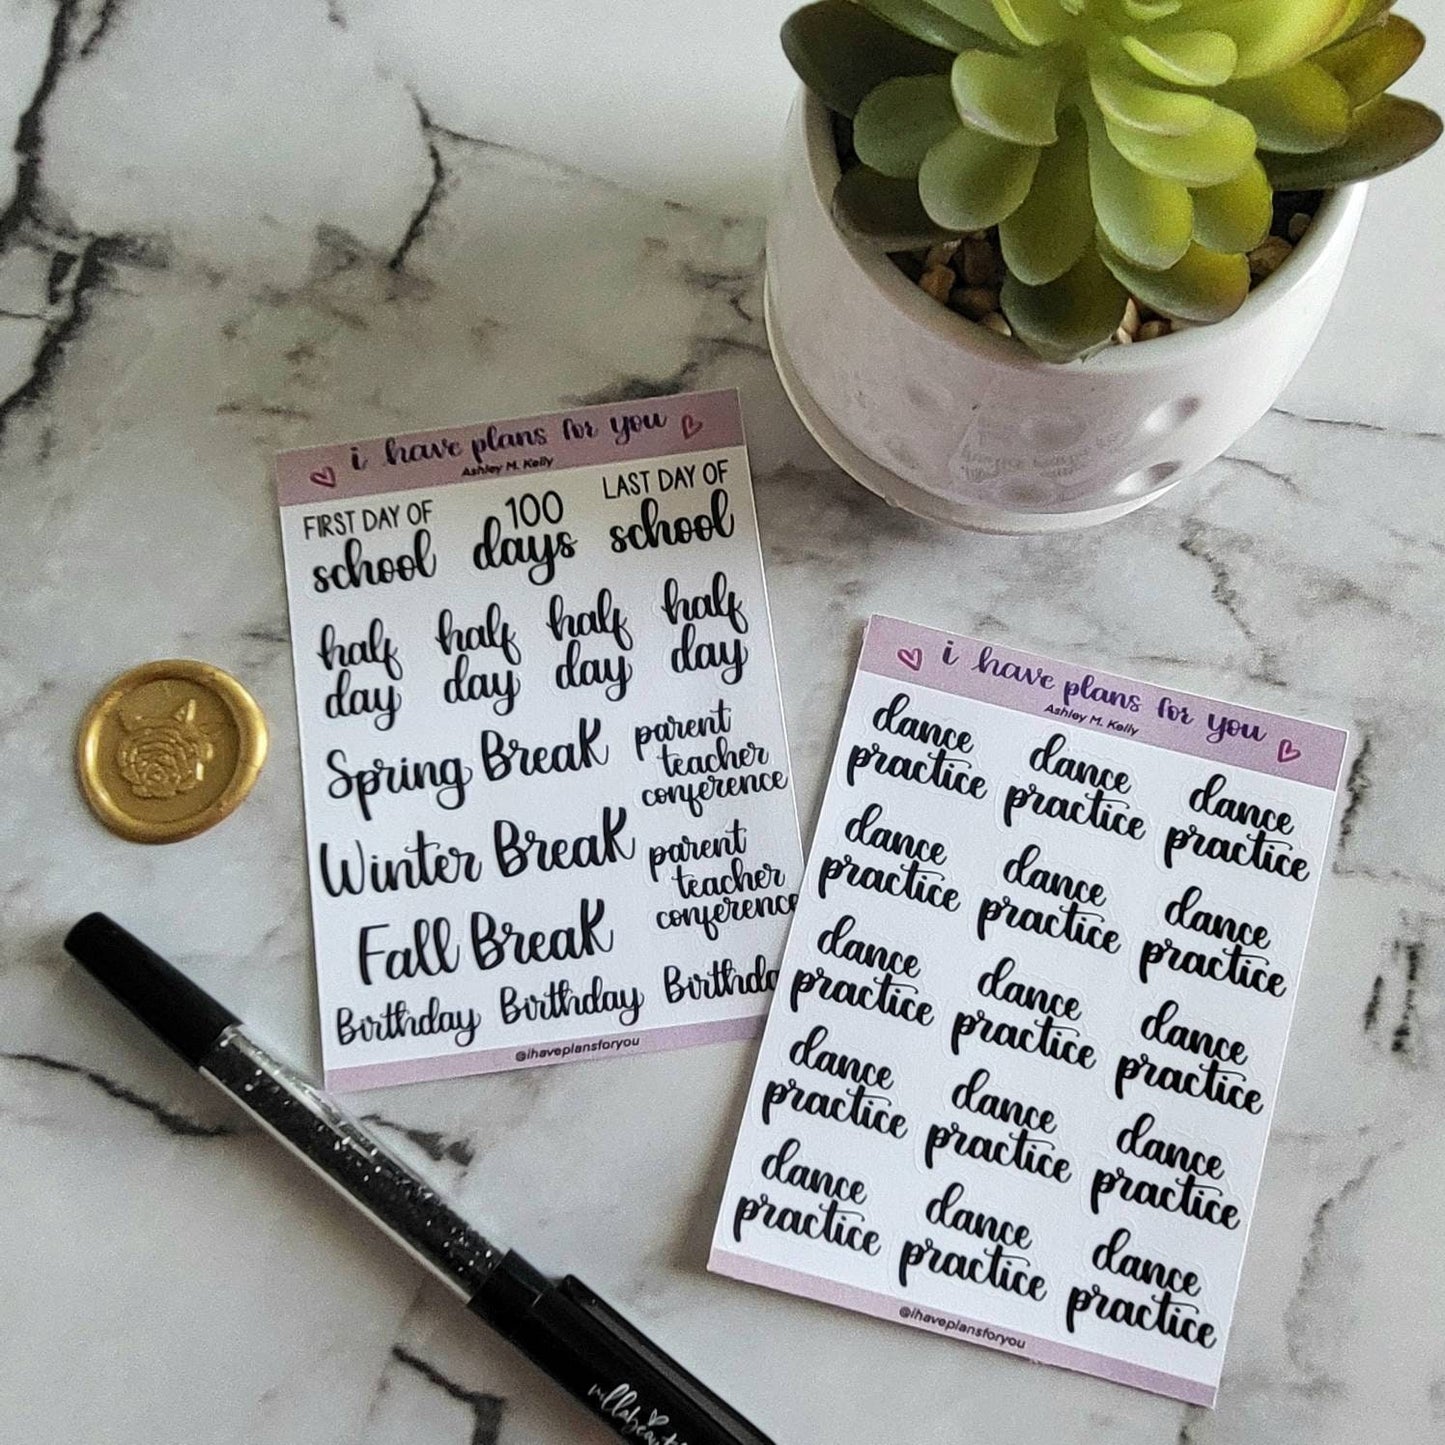 i have plans for you
Ashley M. Kelly
FIRST DAY OF
school
100
days
LAST DAY OF
school
half
day
half
day
half
day
half
day
Spring Break
parent
teacher
conference
Winter Break
parent
teacher
conference
Fall Break
Birthday Birthday Birthda
@ihaveplansforyou
i have plans for you
Ashley M. Kelly
dance
practice
dance
practice
dance
practice
dance
practice
dance
practice
dance
practice
dance
practice
dance
practice
dance
practice
dance
practice
dance
practice
dance
practice
dance
practice
dance
practice
dance
practice
@ihaveplansforyou